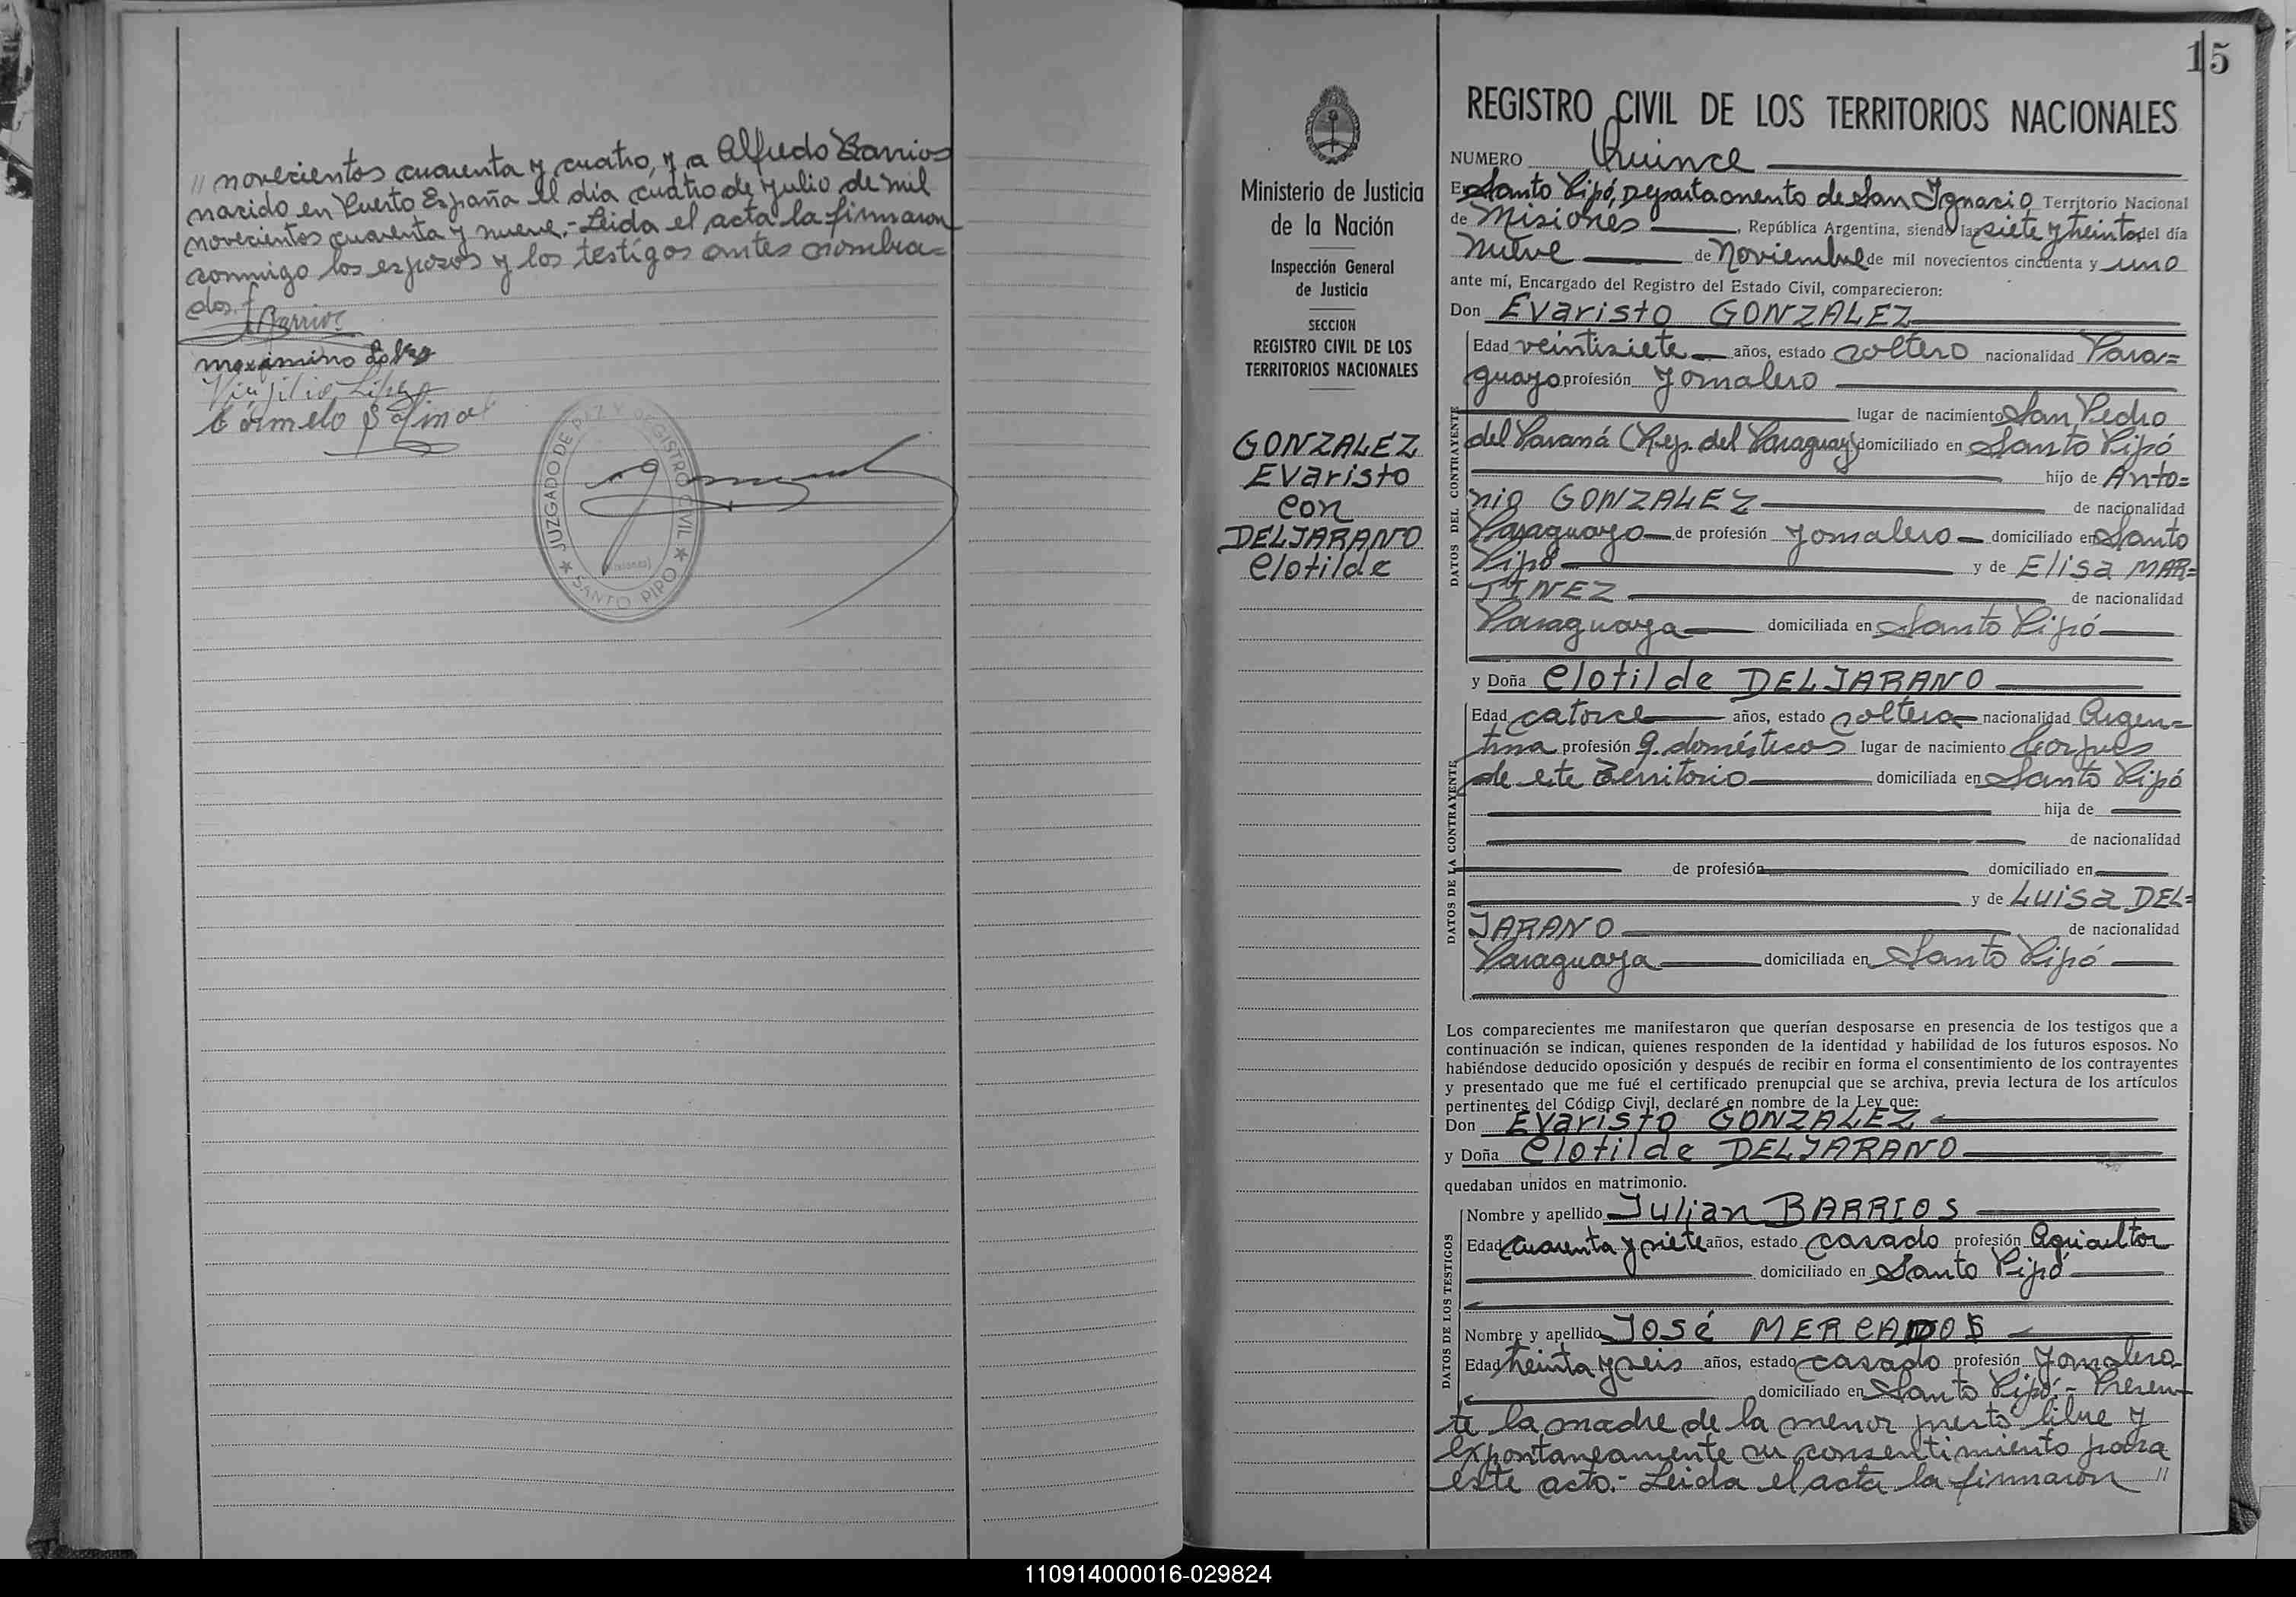 // novecientos cuarenta y cuatro, y a Alfredo Barrios
nacido en Puerto España el día cuatro de julio de mil
novecientos cuarenta y nueve.- Leida el acta la firmaron
conmigo los esposos y los testigos antes nombra=
dos.-
Barrios
Carmelo
JUZGADO DE PAZ Y REGISTRO CIVIL
★ SANTO PIPO ★
15
Ministerio de Justicia
de la Nación
Inspección General
de Justicia
SECCION
REGISTRO CIVIL DE LOS
TERRITORIOS NACIONALES
GONZALEZ
Evaristo
con
DELJARANO
Clotilde
REGISTRO CIVIL DE LOS TERRITORIOS NACIONALES
NUMERO Quince
En Santo Pipó, Departamento de San Ignacio Territorio Nacional
de Misiones, República Argentina, siendo las siete y treinta del día
nueve de Noviembre de mil novecientos cincuenta y uno
ante mí, Encargado del Registro del Estado Civil, comparecieron:
Don Evaristo GONZALEZ
DATOS DEL CONTRAYENTE
Edad veintisiete años, estado soltero nacionalidad Para=
guayo profesión Jornalero
lugar de nacimiento San Pedro
del Paraná (Rep. del Paraguay) domiciliado en Santo Pipó
hijo de Anto=
nio GONZALEZ de nacionalidad
Paraguayo de profesión Jornalero domiciliado en Santo
Pipó y de Elisa MAR=
TINEZ de nacionalidad
Paraguaya domiciliada en Santo Pipó
y Doña Clotilde DELJARANO
DATOS DE LA CONTRAYENTE
Edad catorce años, estado soltera nacionalidad Argen=
tina profesión q. domésticos lugar de nacimiento Corpus
de este Territorio domiciliada en Santo Pipó
hija de
de nacionalidad
de profesión domiciliado en
y de Luisa DEL=
JARANO de nacionalidad
Paraguaya domiciliada en Santo Pipó
Los comparecientes me manifestaron que querían desposarse en presencia de los testigos que a
continuación se indican, quienes responden de la identidad y habilidad de los futuros esposos. No
habiéndose deducido oposición y después de recibir en forma el consentimiento de los contrayentes
y presentado que me fué el certificado prenupcial que se archiva, previa lectura de los artículos
pertinentes del Código Civil, declaré en nombre de la Ley que:
Don Evaristo GONZALEZ
y Doña Clotilde DELJARANO
quedaban unidos en matrimonio.
DATOS DE LOS TESTIGOS
Nombre y apellido Julian BARRIOS
Edad cuarenta y siete años, estado casado profesión Agricultor
domiciliado en Santo Pipó
Nombre y apellido José MERCADOS
Edad treinta y seis años, estado casado profesión Jornalero
domiciliado en Santo Pipó.- Presen-
te la madre de la menor presta libre y
expontaneamente su consentimiento para
este acto.- Leida el acta la firmaron //
110914000016-029824